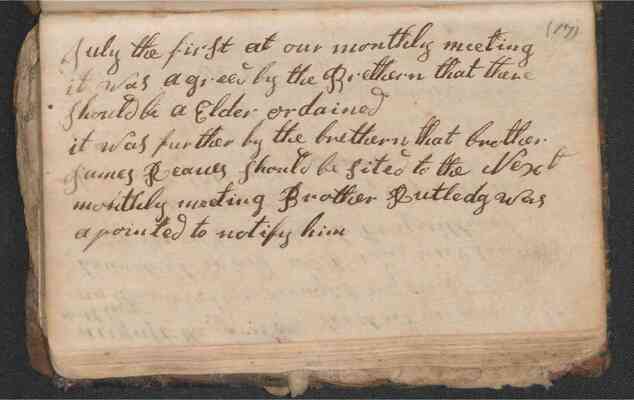 (17)
July the first at our monthly meeting
it was agreed by the Brethern that there
should be a Elder ordained
it was further by the brethern that brother
James Reaves should be sited to the Next
monthly meeting Brother Rutledg was
apointed to notify him